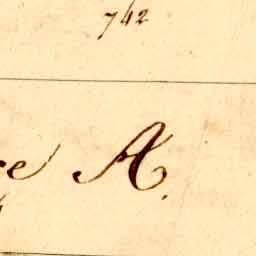 742
re A.